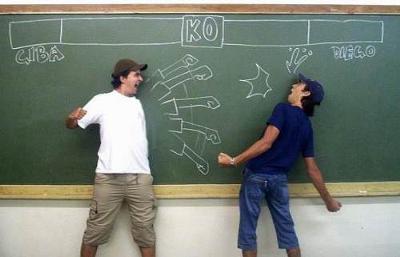 KO
GIBA
DIEGO